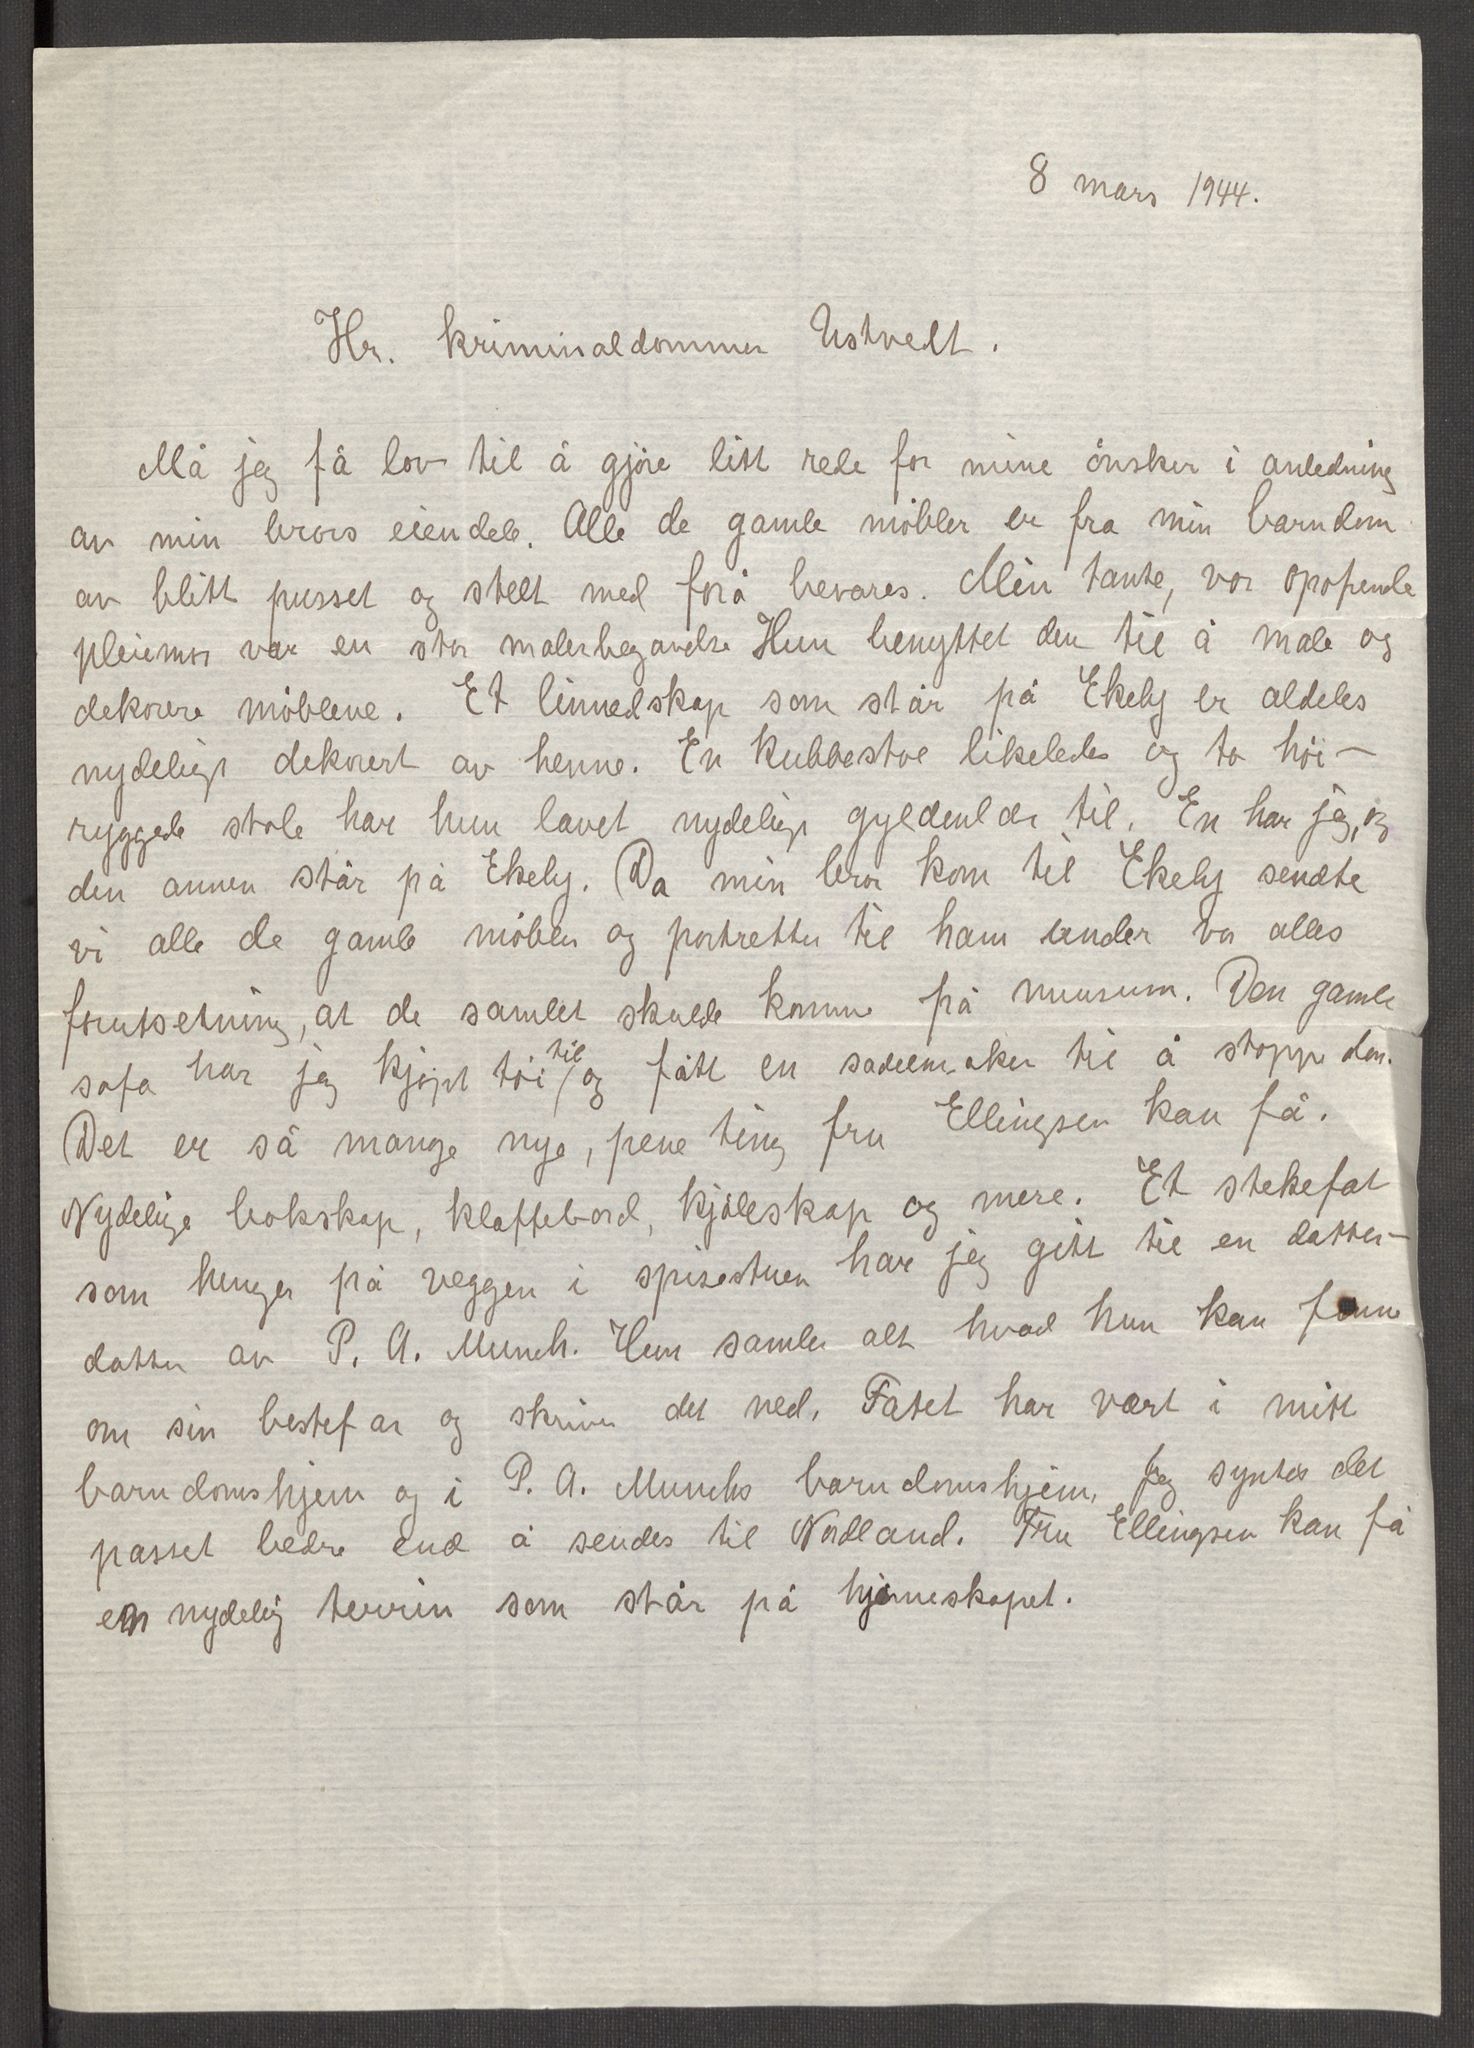 8 mars 1944.
Hr. kriminaldommer Ustvedt.
Må jeg få lov til å gjöre litt rede for mine önsker i anledning
av min brors eiendele. Alle de gamle möbler er fra min barndom
av blitt pusset og stelt med forå bevares. Min tante, vor opofrende
pleiemor var en stor malerbegavelse Hun benyttet den til å male og
dekorere möblene. Et linnedskap som står på Ekely er aldeles
nydeligt dekorert av henne. En kubbestol likeledes og to höi-
ryggede stole har hun lavet nydeligt gyldenlær til. En har jeg, og
den annen står på Ekely. Da min bror kom til Ekely sendte
vi alle de gamle möbler og portretter til ham under vor alles
forutsetning, at de samlet skulde komme på museum. Den gamle
sofa har jeg kjöpt töi til og fått en sadelmaker til å stoppe den.
Det er så mange nye, pene ting fru Ellingsen kan få.
Nydelige bokskap, klaffebord, kjöleskap og mere. Et stekefat
som henger på veggen i spisestuen har jeg gitt til en datter-
datter av P. A. Munch. Hun samler alt hvad hun kan finne
om sin bestefar og skriver det ned. Fatet har vært i mitt
barndomshjem og i P. A. Munchs barndomshjem. Jeg syntes det
passet bedre end å sendes til Nordland. Fru Ellingsen kan få
en nydelig terrin som står på hjörneskapet.